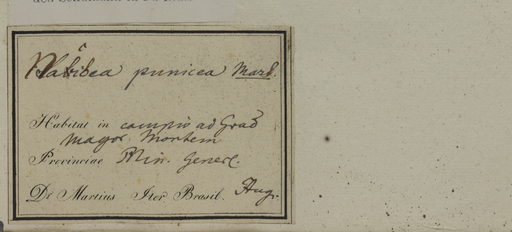 Nabidea punicea Mart.
Habitat in campis ad Grad
Magor. Montem
Provinciae Min. Generl.
Dr Martius Iter Brasil. Aug.